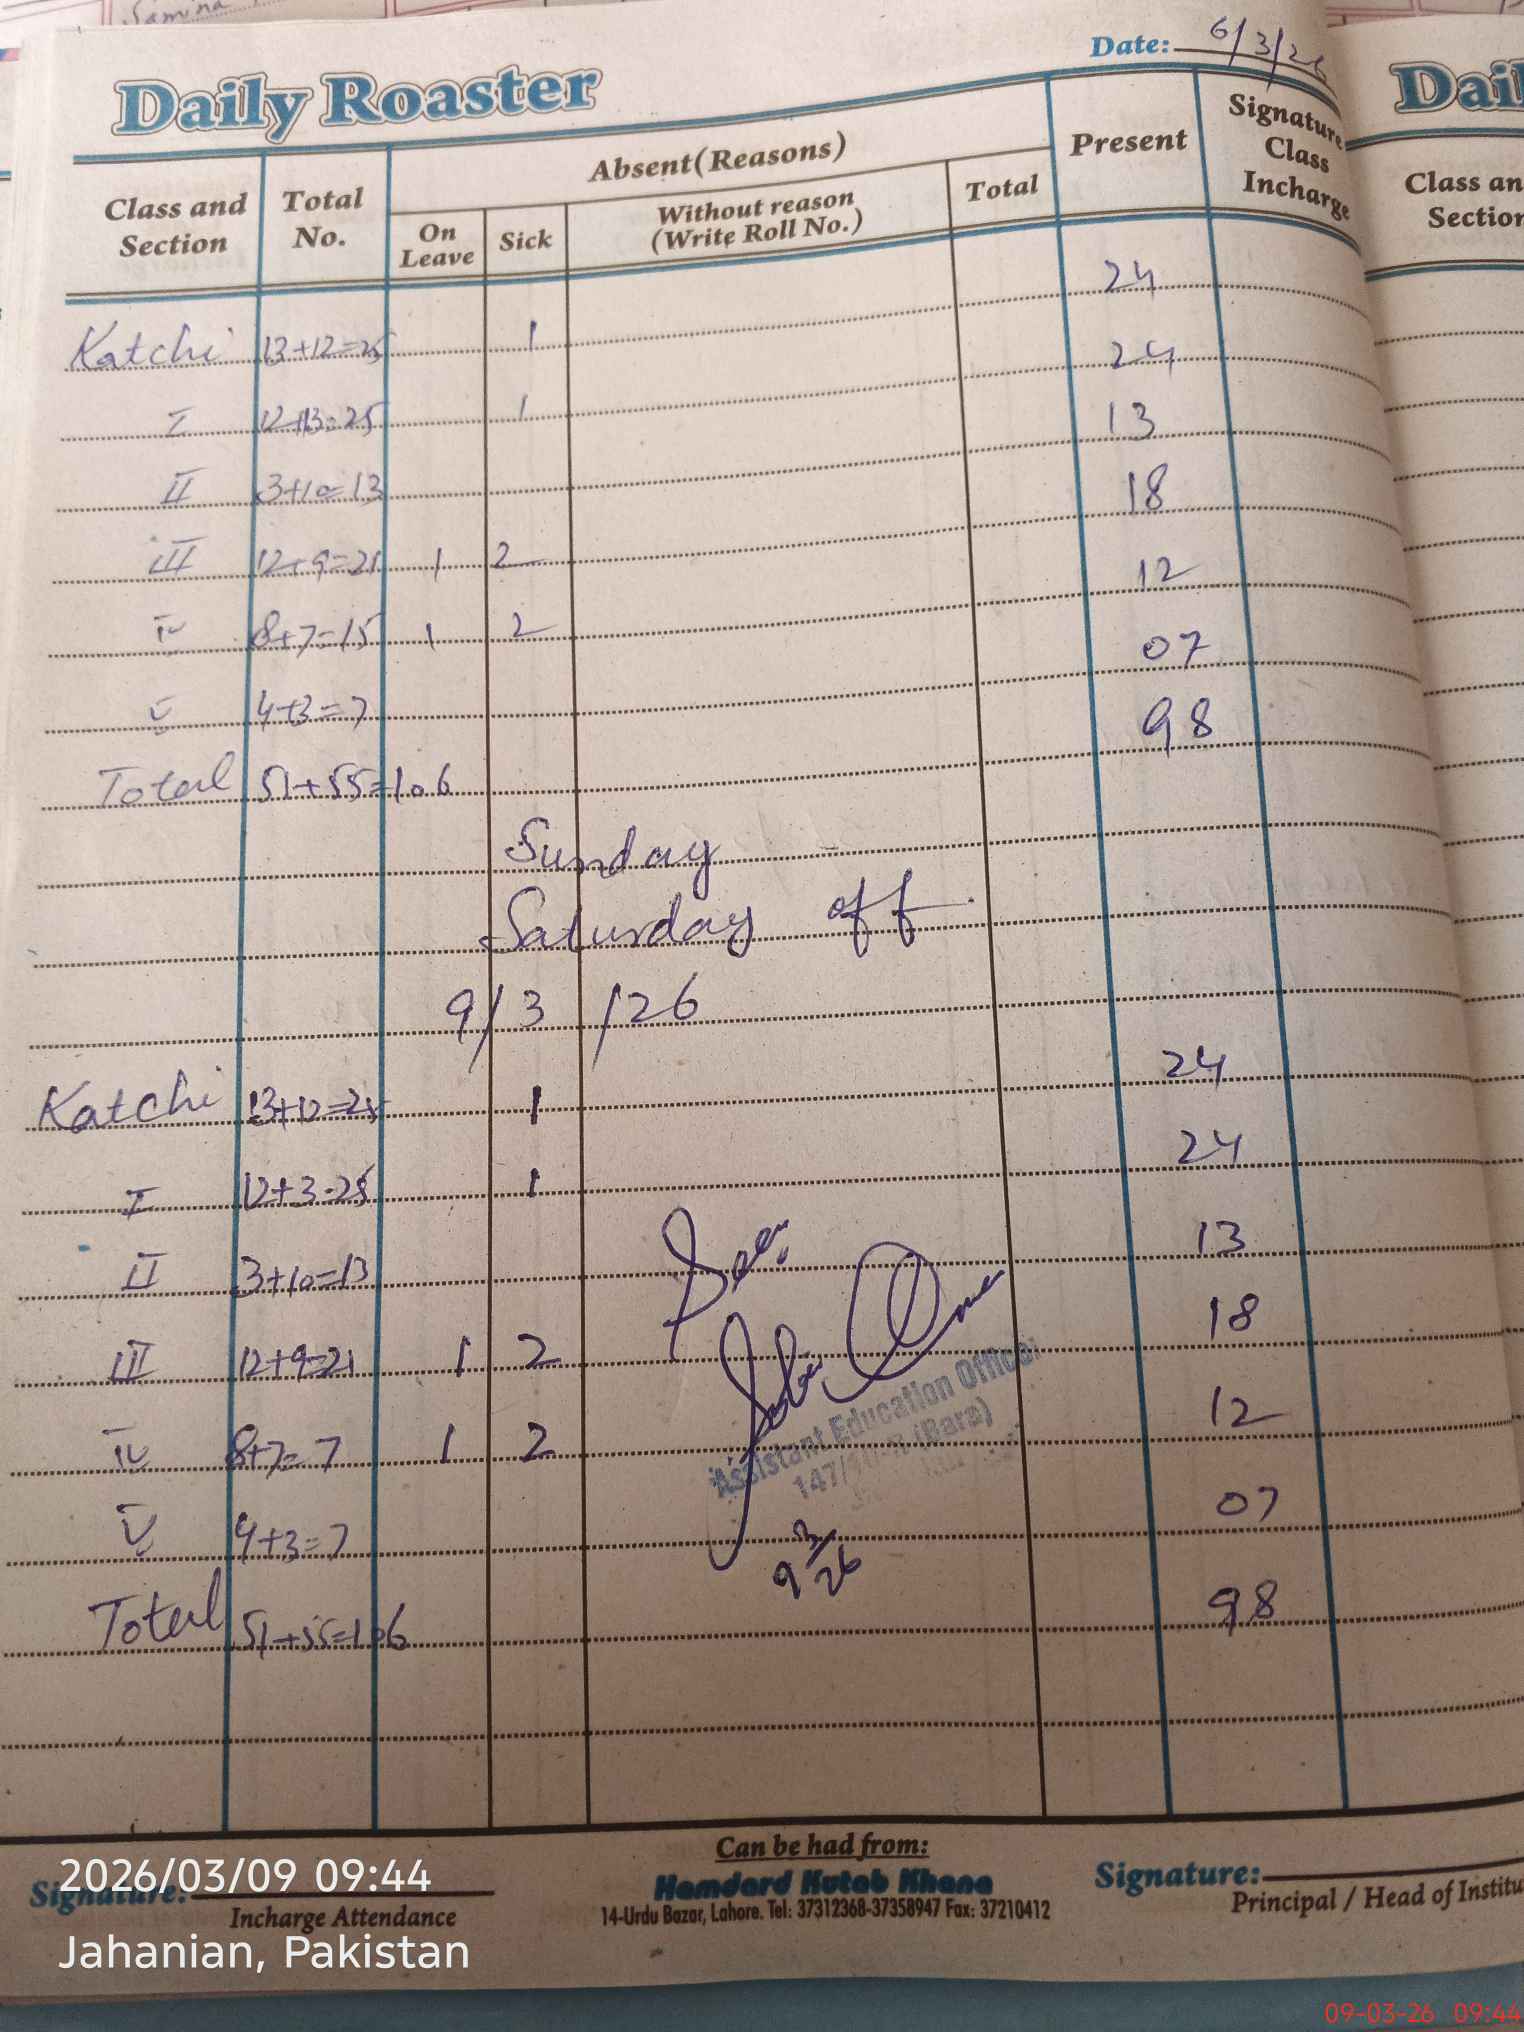 Samina
Date: 6/3/26
Daily Roaster
Class and Section | Total No. | Absent(Reasons) | Present | Signature Class Incharge
On Leave | Sick | Without reason (Write Roll No.) | Total
Katchi 13+12=25 1 24
I 12+13=25 1 24
II 3+10=13 13
III 12+9=21 1 2 18
IV 8+7=15 1 2 12
V 4+3=7 07
Total 51+55=106 98
Sunday
Saturday off
9/3/26
Katchi 13+12=25 1 24
I 12+3=25 1 24
II 3+10=13 13
III 12+9=21 1 2 18
IV 8+7=7 1 2 12
V 4+3=7 07
Total 51+55=106 98
Seen
Assistant Education Officer
(Bara)
9/3/26
Can be had from:
Hamdard Kutab Khana
14-Urdu Bazar, Lahore. Tel: 37312368-37358947 Fax: 37210412
Signature:
Incharge Attendance
Signature:
Principal / Head of Institu
2026/03/09 09:44
Jahanian, Pakistan
09-03-26 09:44
Dail
Class an
Section